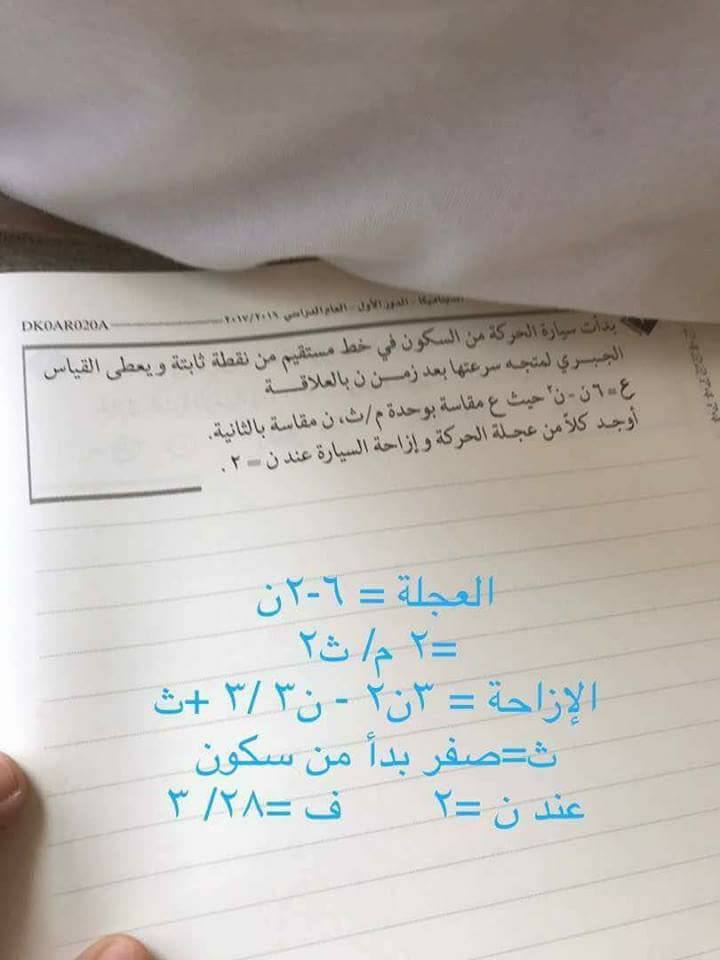 DK0AR020A
الدور الأول - العام الدراسي ٢٠١٧/٢٠١٦
بدأت سيارة الحركة من السكون في خط مستقيم من نقطة ثابتة ويعطى القياس
الجبري لمتجه سرعتها بعد زمن ن بالعلاقة
ع = ٦ ن - ن٢ حيث ع مقاسة بوحدة م/ث، ن مقاسة بالثانية.
أوجد كلاً من عجلة الحركة وإزاحة السيارة عند ن = ٢ .
العجلة = ٦-٢ن
=٢ م/ ث٢
الإزاحة = ٣ن٢ - ن٣ /٣ +ث
ث=صفر بدأ من سكون
عند ن =٢ ف =٢٨/ ٣